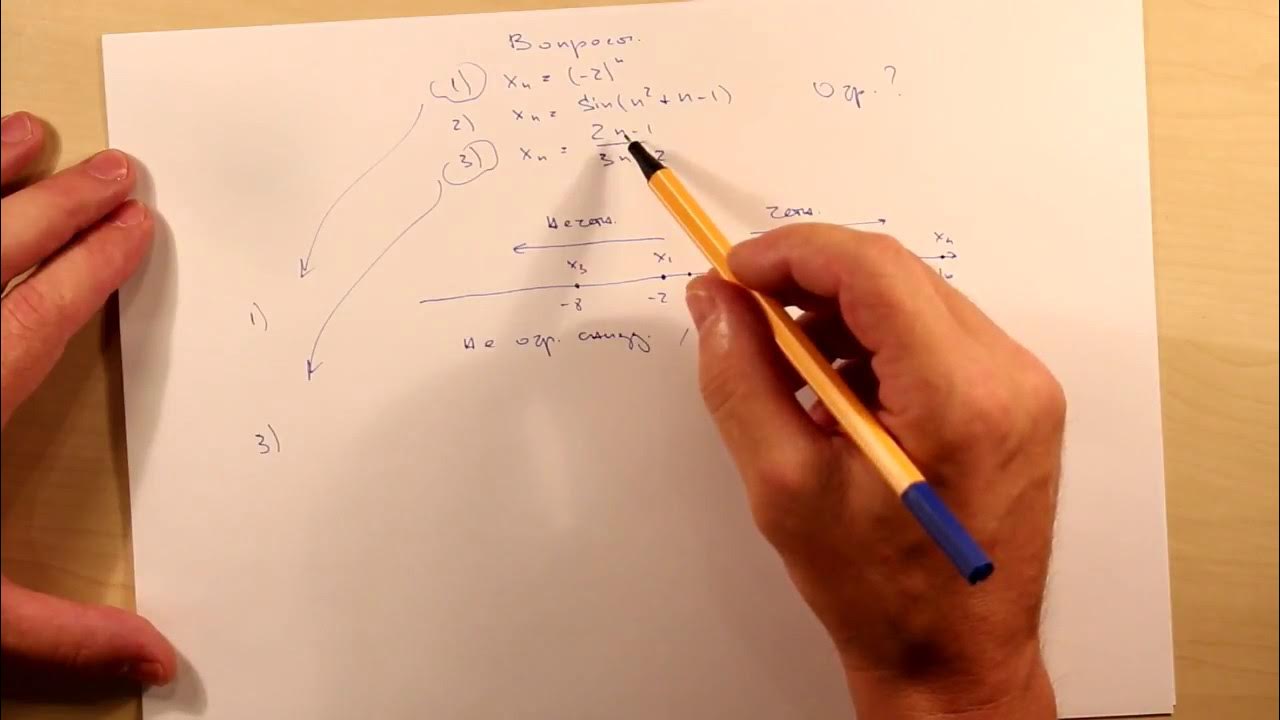 Вопросы.
1) xₙ = (-2)ⁿ
2) xₙ = Sin(n² + n - 1)
Огр.?
3) xₙ = 2n-1
3n 2
Нечетн.
Четн.
x₃ x₁
-8 -2
1)
не огр. снизу
3)